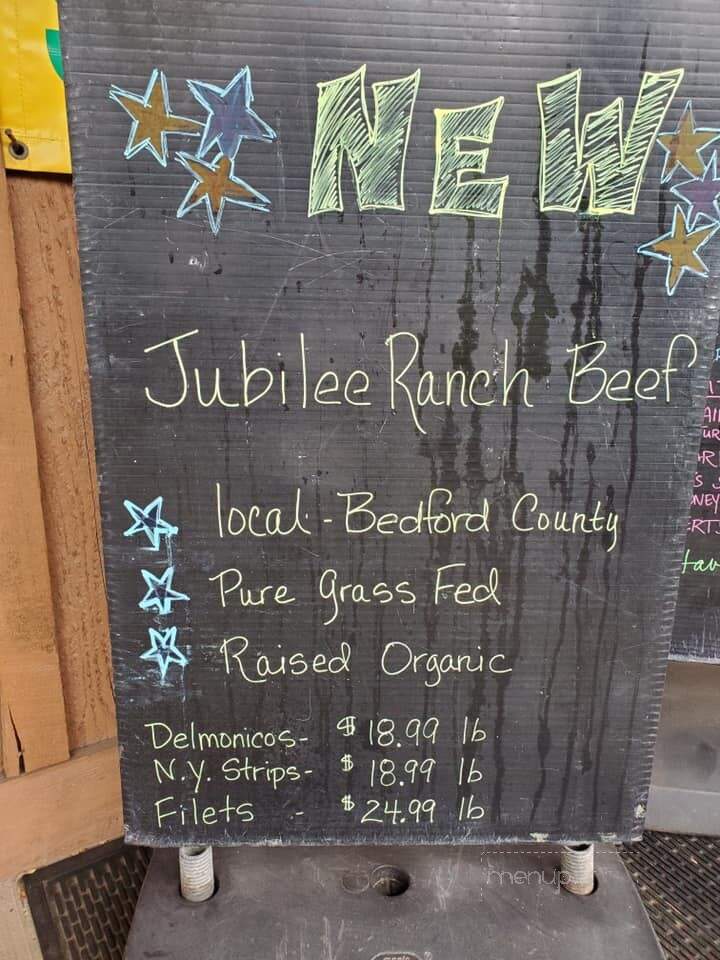 NEW
Jubilee Ranch Beef
local - Bedford County
Pure Grass Fed
Raised Organic
Delmonicos- $18.99 lb
N.Y. Strips- $18.99 lb
Filets - $24.99 lb
menup